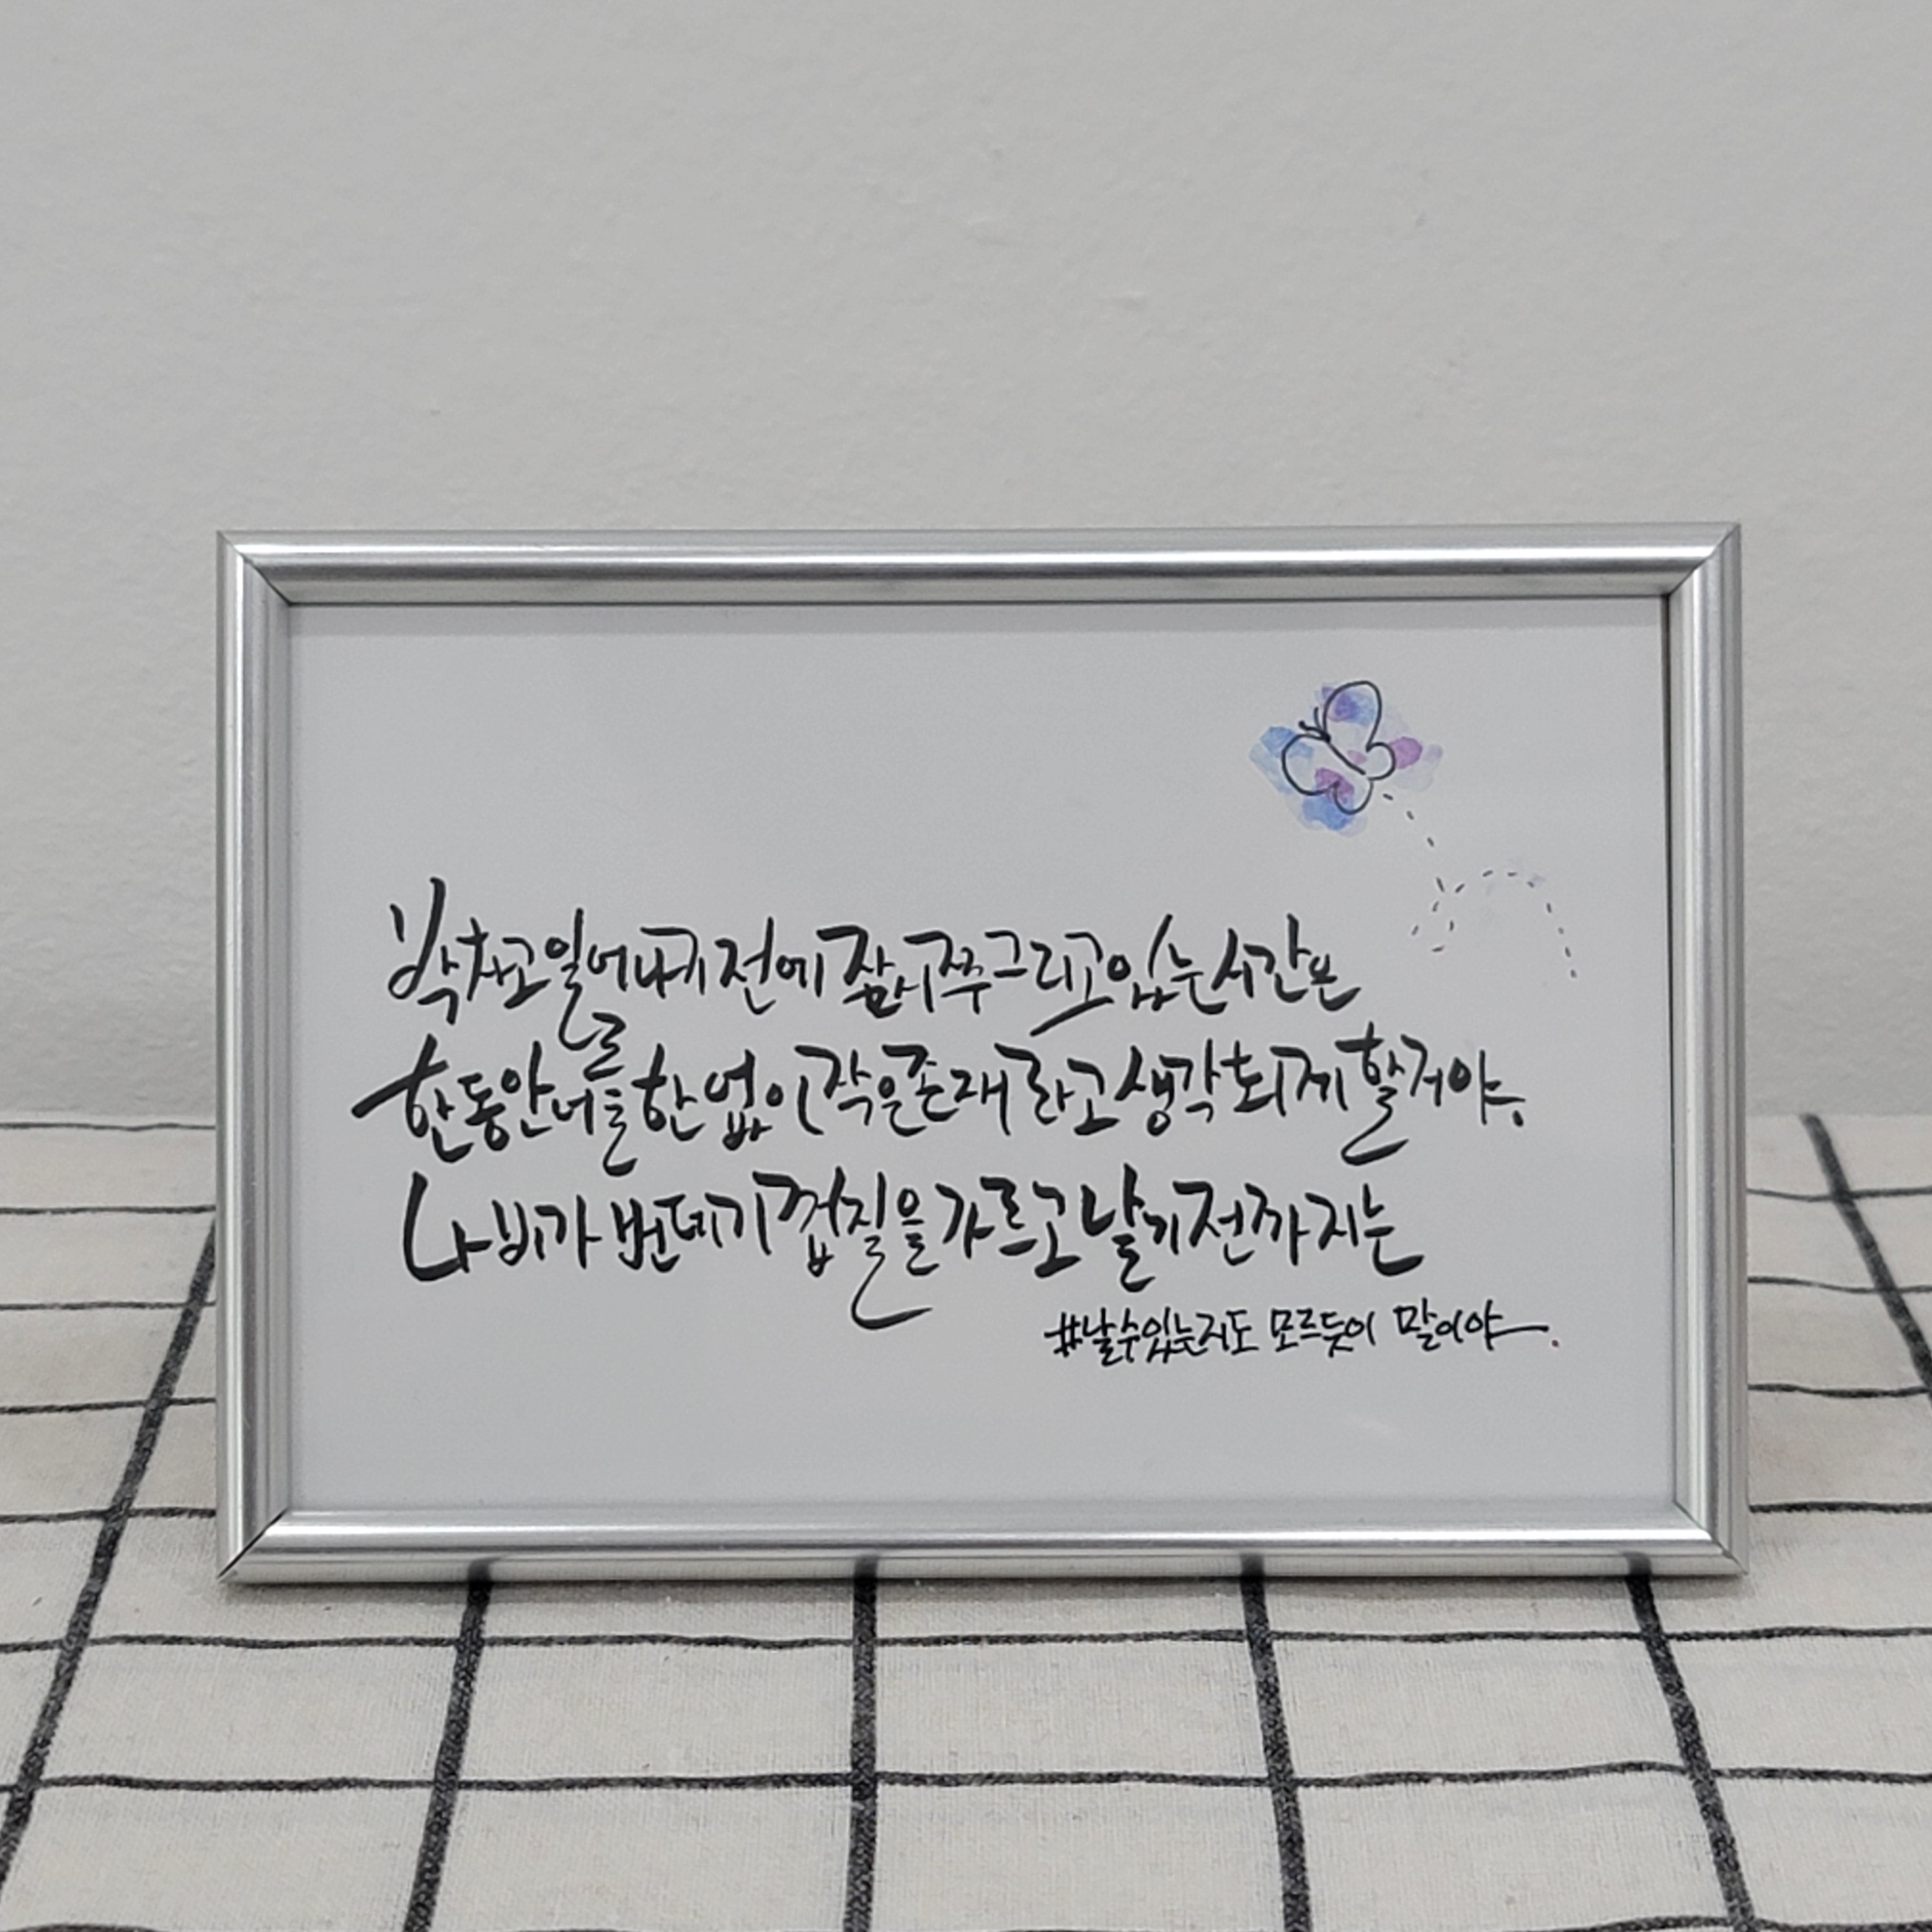 박차고 일어나기 전에 잠시 쭈그리고 있는 시간은
한동안 너를 한없이 작은 존재라고 생각되게 할거야.
나비가 번데기 껍질을 가르고 날기 전까지는
#날 수 있는지도 모르듯이 말이야.